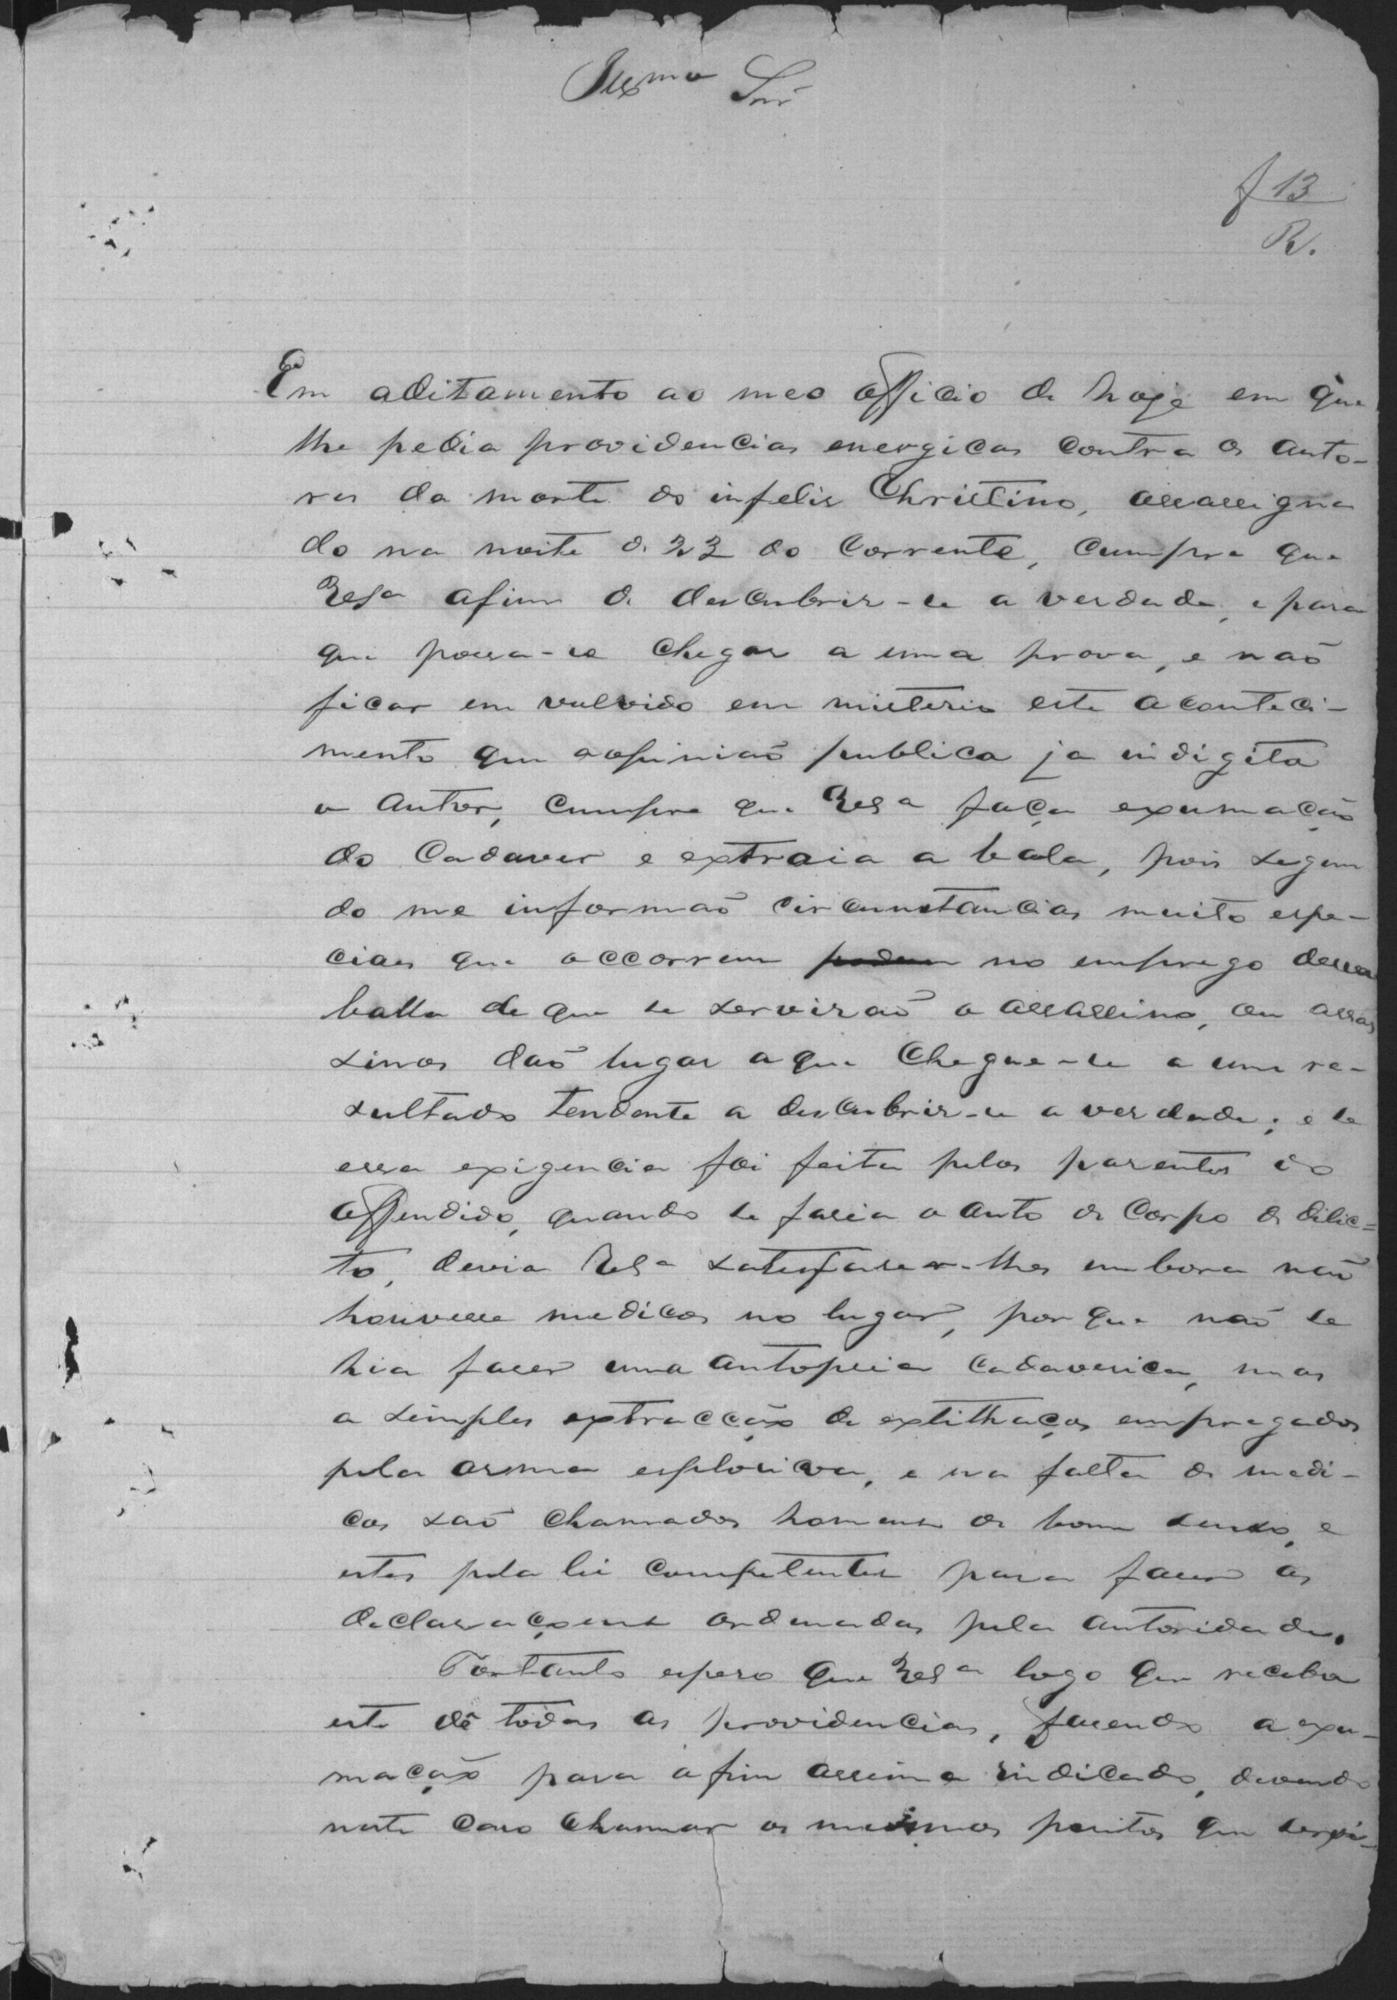 Illmo Snr
f 13
R.
Em aditamento ao meo officio de hoje em que
lhe pedia providencias energicas contra os auto-
res da morte do infelis Christino, assassigna
do na noite de 22 do corrente, cumpre que
VSa afim de descubrir-se a verdade, e para
que possa-se chegar a uma prova, e naõ
ficar em vulvido em misterio este aconteci-
mento que a opiniaõ publica ja indigita
o autor, cumpre que VSa faça exumação
do cadaver e extraia a bala, pois segun
do me informaõ circunstancias muito espe-
ciaes que occorrem no emprego dessa
balla de que se serviraõ o assassino, ou assas
sinos daõ lugar a que chegue-se a um re-
sultado tendente a descubrir-se a verdade; e se
essa exigencia foi feita pelos parentes do
offendido, quando se fasia o auto de corpo de dilic-
to, devia VSa satisfaser-lhes embora naõ
houvesse medicos no lugar, por que naõ se
hia faser uma autopsia cadaverica, mas
a simples extracção de extilhaços empregados
pela arma explosiva, e na falta de medi-
cos saõ chamados homens de bom senso, e
estes pela lei competentes para faser as
declaraçoens ordenadas pela autoridade.
Portanto espero que VSa logo que receba
este dê todas as providencias, fasendo a exu-
mação para o fim assima indicado, devendo
neste caso chamar os mesmos peritos que servi-